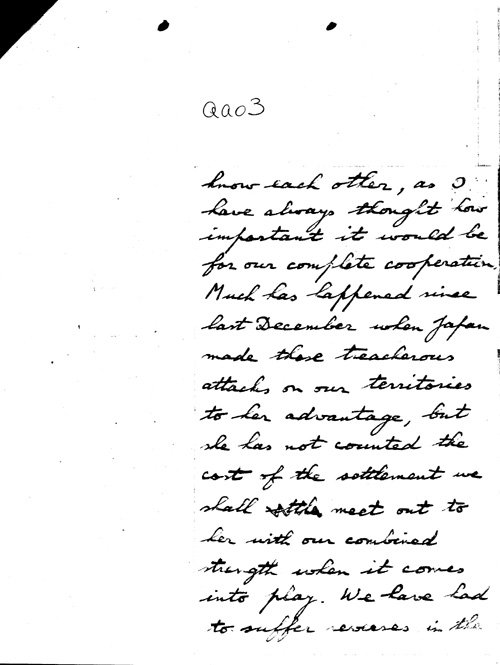 Qa03
know each other, as I
have always thought how
important it would be
for our complete cooperation.
Much has happened since
last December when Japan
made those treacherous
attacks on our territories
to her advantage, but
she has not counted the
cost of the settlement we
shall meet out to
her with our combined
strength when it comes
into play. We have had
to suffer reverses in the